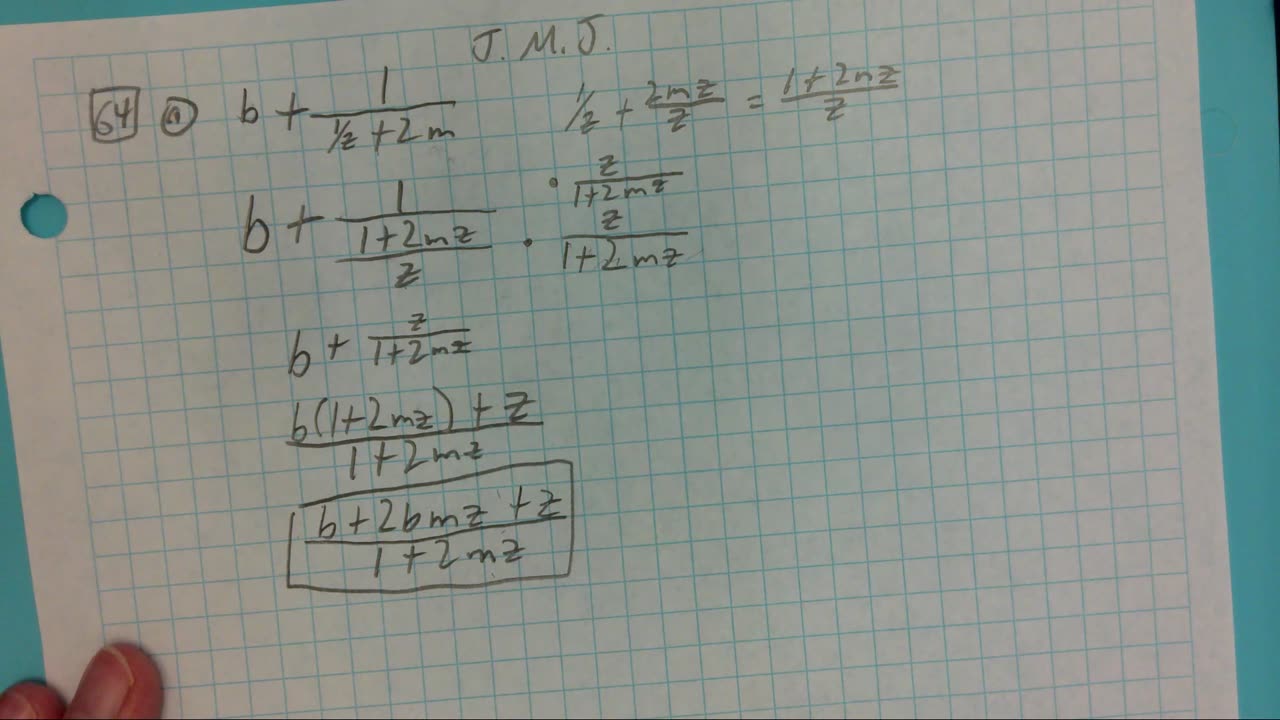 J. M. J.
64 a b + 1/(1/z + 2m) 1/z + 2mz/z = (1+2mz)/z
b + 1/((1+2mz)/z) · z/(1+2mz) · z/(1+2mz)
b + z/(1+2mz)
(b(1+2mz) + z)/(1+2mz)
(b+2bmz+z)/(1+2mz)